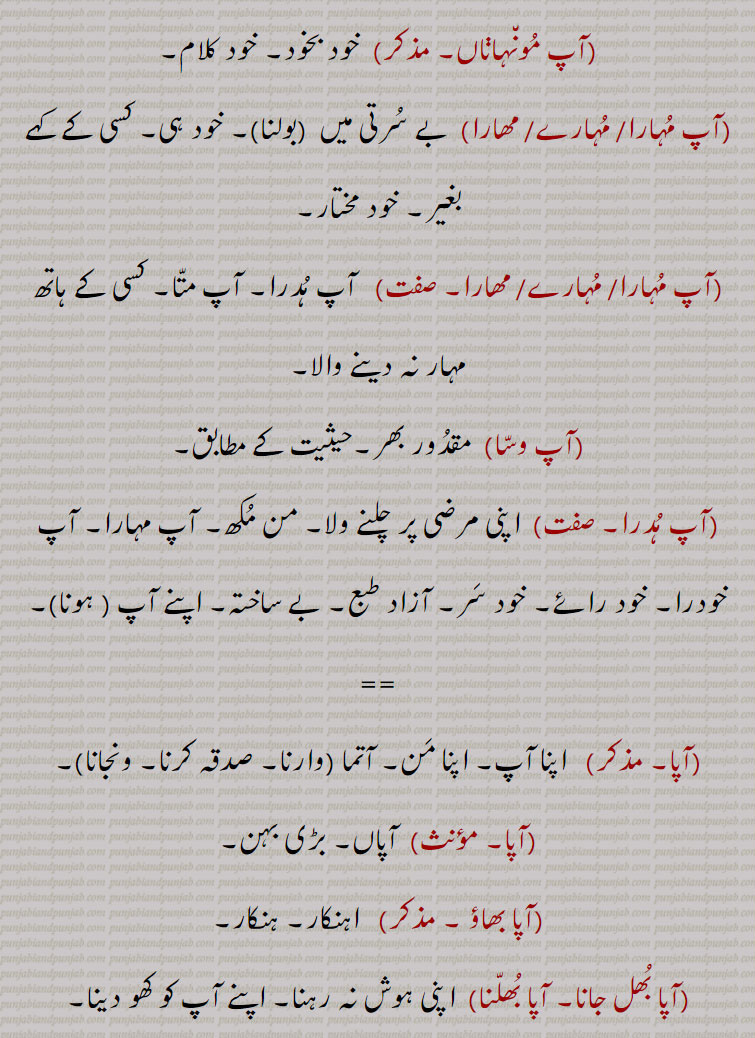 (آپ مُونّہاݨاں۔ مذکر) خود بخود۔ خود کلام۔
(آپ مُہارا/ مُہارے/ مھارا) بے سُرتی میں (بولنا)۔ خود ہی۔ کسی کے کہے
بغیر۔ خود مختار۔
(آپ مُہارا/ مُہارے/ مھارا۔ صفت) آپ ہُدرا۔ آپ متّا۔ کسی کے ہاتھ
مہار نہ دینے والا۔
(آپ وسّا) مقدُور بھر۔ حیثیت کے مطابق۔
(آپ ہُدرا۔ صفت) اپنی مرضی پر چلنے ولا۔ من مُکھ۔ آپ مہارا۔ آپ
خودرا۔ خود رائے۔ خود سَر۔ آزاد طبع۔ بے ساختہ۔ اپنے آپ ( ہونا)۔
==
(آپا۔ مذکر) اپنا آپ۔ اپنا مَن۔ آتما (وارنا۔ صدقہ کرنا۔ ونجانا)۔
(آپا۔ مؤنث) آپاں۔ بڑی بہن۔
(آپا بھاؤ ۔ مذکر) اہنکار۔ ہنکار۔
(آپا بُھل جانا۔ آپا بُھلّنا) اپنی ہوش نہ رہنا۔ اپنے آپ کو کھو دینا۔